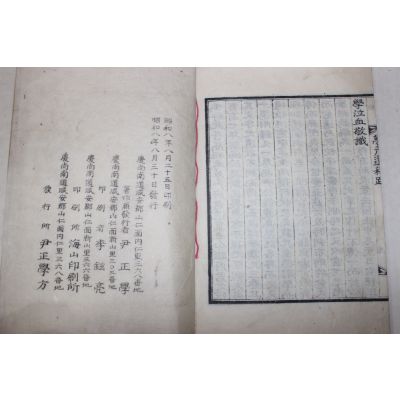 學泣血敬識
昭和八年八月二十五日印刷
昭和八年八月三十日發行
慶尙南道咸安郡山仁面內仁里三六八番地
著作兼發行者 尹正學
慶尙南道咸安郡山仁面新山里三〇三番地
印刷者 李鉉亮
慶尙南道咸安郡山仁面新山里三六六番地
印刷所 海山印刷所
慶尙南道咸安郡山仁面內仁里三六八番地
發行所 尹正學方